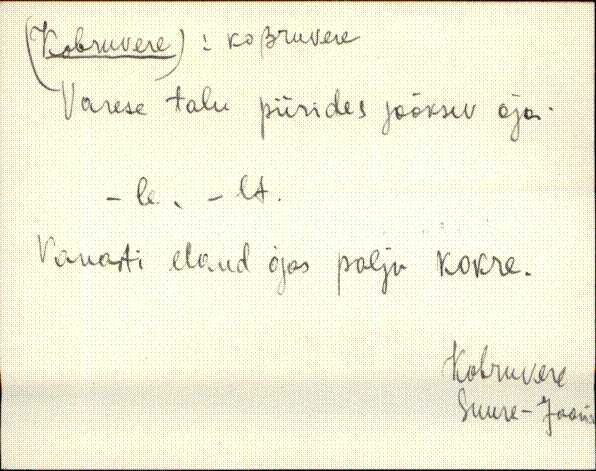 (Kobruvere) : koʙruvere
Varese talu piirides jooksev oja.
-le, -lt.
Vanasti eland ojas palju kokre.
Kobruvere
Suure-Jaani